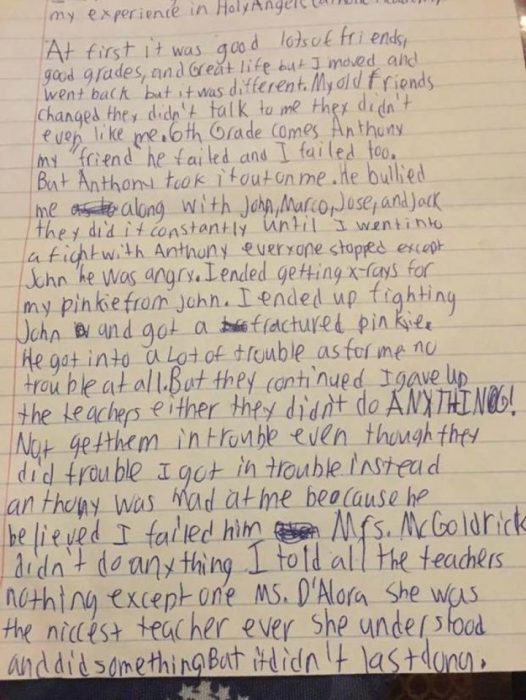 my experience in Holy Angels Catholic Academy
At first it was good lots of friends,
good grades, and Great life but I moved and
went back but it was different. My old friends
changed they didn't talk to me they didn't
even like me. 6th Grade comes Anthony
my "friend" he failed and I failed too.
But Anthony took it out on me. He bullied
me along with John, Marco, Jose, and Jack
they did it constantly until I went into
a fight with Anthony everyone stopped except
John he was angry. I ended getting x-rays for
my pinkie from John. I ended up fighting
John and got a fractured pinkie.
He got into a Lot of trouble as for me no
trouble at all. But they continued I gave up
the teachers either they didn't do ANYTHING!
Not get them in trouble even though they
did trouble I got in trouble instead
anthony was mad at me beacause he
believed I failed him Mrs. McGoldrick
didn't do anything I told all the teachers
nothing except one Ms. D'Alora she was
the niccest teacher ever she understood
and did something But it didn't last long.